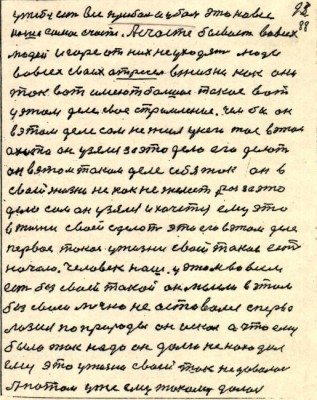 92
88
наше само счастье. А счастье бывает во всех
людей и горе от них не уходят люди
во всех своих в жизни как они
так вот имеют большое такое вот
у этом деле свое стремление. Чем бы он
в этом деле сам не жил у него тое в этом
охота он узялся за это дело его делать
он в этом таком деле себя так он в
своей жизни не как не жалеет раз за это
дело сам он узялся и хочется ему это
в жизни своей сделать это его в этом деле
первое такое у жизни своей такая есть
начало. Человек наш у этом во всем
есть без своей такой он мысли в этом
без своей лично не оставался сперва
лазил по природе он искал а что ему
было так надо он долго не находил
ему это у жизни своей так не давалось
А потом уже ему такому далось